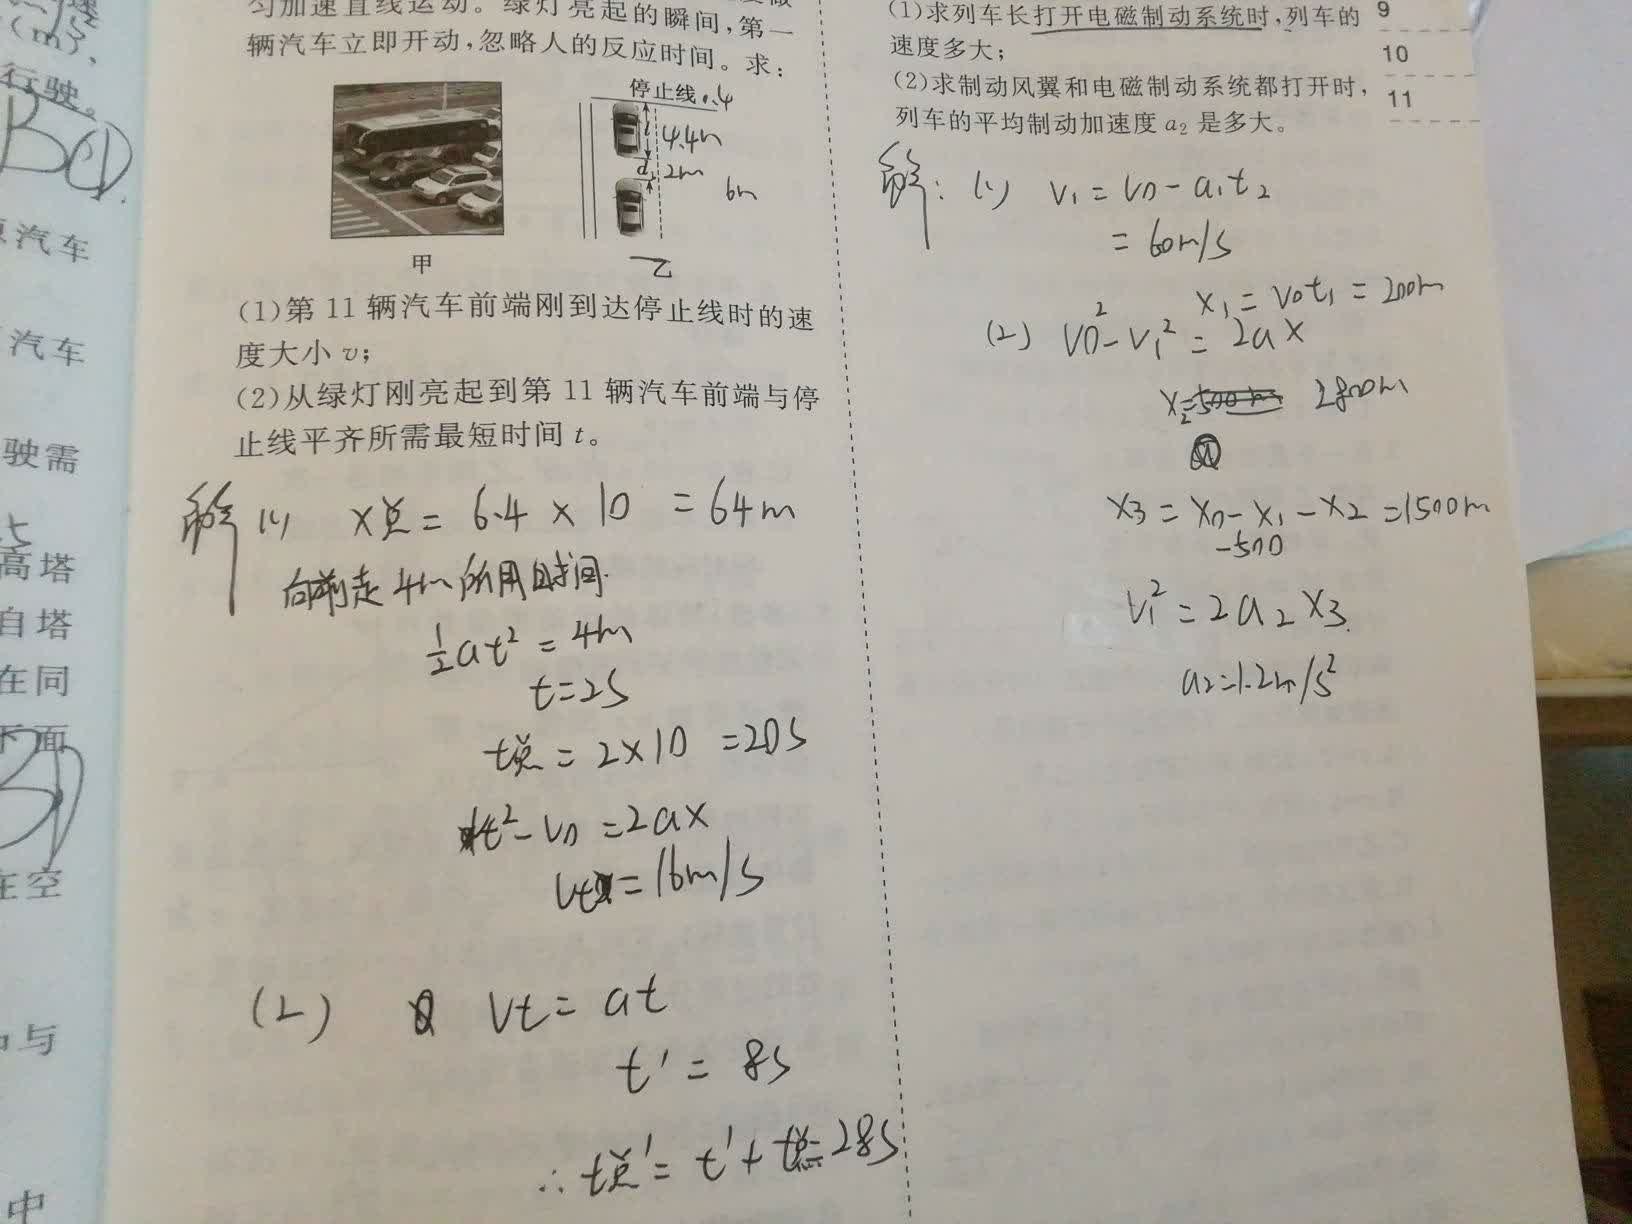 匀加速直线运动。绿灯亮起的瞬间,第一
辆汽车立即开动,忽略人的反应时间。求:
停止线
0.4
l
4.4m
d
2m
6m
甲
乙
(1)第 11 辆汽车前端刚到达停止线时的速
度大小 v;
(2)从绿灯刚亮起到第 11 辆汽车前端与停
止线平齐所需最短时间 t。
解 (1) x总 = 6.4 × 10 = 64m
向前走 4m 所用时间.
½at² = 4m
t=2s
t总 = 2×10 =20s
vt² - v0 = 2ax
vt = 16m/s
(2) vt = at
t' = 8s
∴ t总' = t' + t总 = 28s
(1)求列车长打开电磁制动系统时,列车的
速度多大;
(2)求制动风翼和电磁制动系统都打开时,
列车的平均制动加速度 a₂ 是多大。
9
10
11
解: (1) v₁ = v0 - a₁t₂
= 60m/s
x₁ = v0t₁ = 200m
(2) v0² - v₁² = 2ax
x₂= 2800m
x₃ = x0 - x₁ - x₂ =1500m
-500
v₁² = 2a₂x₃.
a₂=1.2m/s²
行驶。
汽车
汽车
驶需
高塔
自塔
在同
下面
在空
与
中